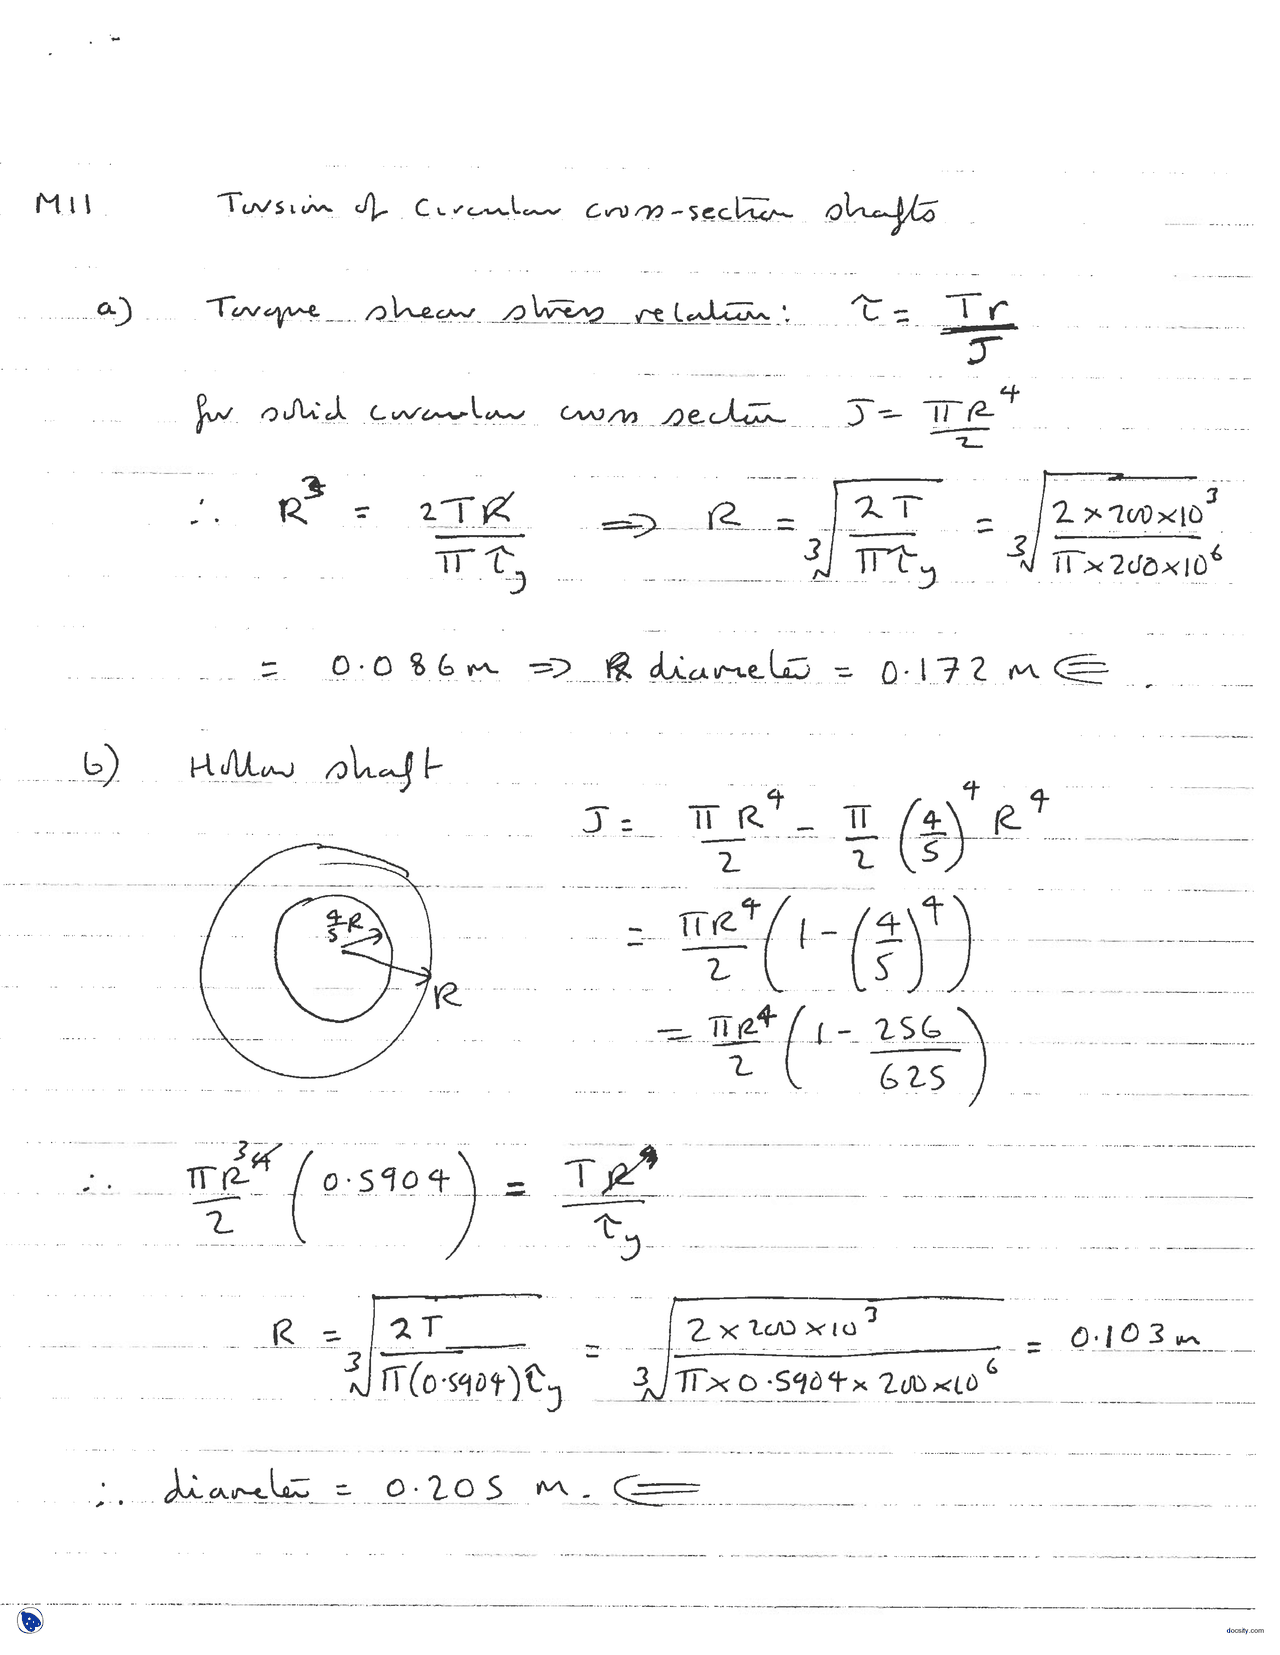 M11 Torsion of circular cross-section shafts
a) Torque shear stress relation: τ = Tr/J
for solid circular cross section J = πR⁴/2
∴ R³ = 2TR/πτy ⇒ R = ∛(2T/πτy) = ∛(2×200×10³/π×200×10⁶)
= 0.086m ⇒ diameter = 0.172 m ⇐
b) Hollow shaft
J = πR⁴/2 − π/2 (4/5)⁴ R⁴
= πR⁴/2 (1 − (4/5)⁴)
4/5 R
R
= πR⁴/2 (1 − 256/625)
∴ πR³/2 (0.5904) = TR/τy
R = ∛(2T/π(0.5904)τy) = ∛(2×200×10³/π×0.5904×200×10⁶) = 0.103m
∴ diameter = 0.205 m. ⇐
docsity.com